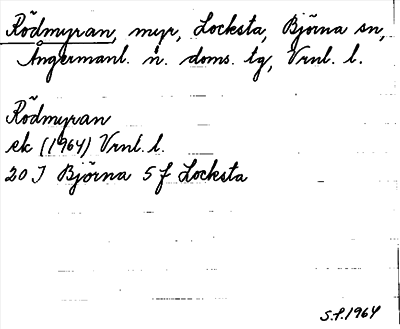 Rödmyran, myr, Locksta, Björna sn,
Ångermanl. n. doms. tg, Vrnl. l.
Rödmyran
ek (1964) Vrnl. l.
20 J Björna 5 f Locksta
S.P. 1964